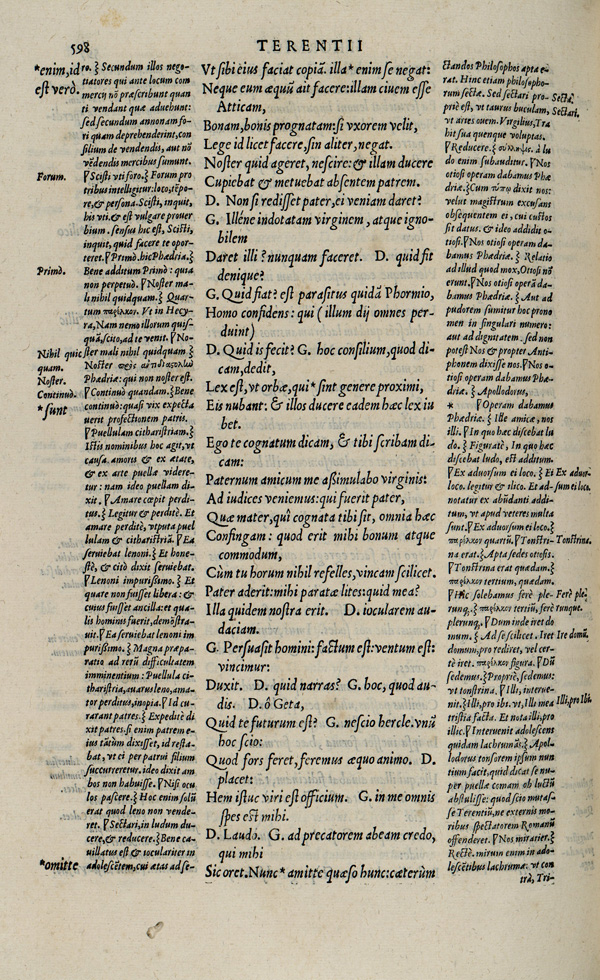 598
TERENTII
*enim, id
est verò.
Forum.
Primò.
Nihil quic
quam.
Noster.
Continuò.
*sunt
*omitte
ro. ξ Secundum illos nego-
tiatores qui ante locum com
mercij nō præscribunt quan
ti vendant quæ aduehunt:
sed secundum annonam fo-
ri quam deprehenderint, con
silium de vendendis, aut nō
vēdendis mercibus sumunt.
Scisti vti foro. ξ Forum pro
tribus intelligitur: loco, tēpo-
re, & persona. Scisti, inquit,
his vti. & est vulgare prouer
bium. sensus hic est, Scisti,
inquit, quid facere te opor-
teret. Primò. hic Phædria. ξ
Bene additum Primò: quia
non perpetuò. Noster ma-
li nihil quidquam. ξ Quar-
tum παρέλκον. Vt in Hecy-
ra, Nam nemo illorum quis-
quā, scito, ad te venit. No-
ster mali nihil quidquam ξ
Noster
Phædria: qui non noster est.
Continuò quandam. ξ Bene
continuò: quasi vix expecta
uerit profectionem patris.
Puellulam citharistriam. ξ
Istis nominibus hoc agit, vt
causa amoris & ex ætate,
& ex arte puellæ videre-
tur: nam ideo puellam di-
xit. Amare cœpit perdi-
tus. ξ Legitur & perditè. Et
amare perditè, vtputa puel
lulam & citharistriā. Ea
seruiebat lenoni. Et hone-
stè, & citò dixit seruiebat.
Lenoni impurissimo. ξ Et
quare non fuisset libera: &
cuius fuisset ancilla: et qua-
lis hominis fuerit, demōstra-
uit. Ea seruiebat lenoni im
purissimo. ξ Magna præpa-
ratio ad rerū difficultatem
imminentium: Puellula ci-
tharistria, auarus leno, ama-
tor perditus, inopia. Id cu-
rarant patres. ξ Expeditè di
xit patres. si enim patrem e-
ius tātùm dixisset, id resta-
bat, vt ei per patrui filium
succurreretur. ideo dixit am
bos non habuisse. Nisi ocu
los pascere. ξ Hoc enim solū
erat quod leno non vende-
ret. Sectari, in ludum du-
cere, & reducere. ξ Bene ca-
uillatus est & iocularìter in
adolescētem, cui ætas ad se-
Vt sibi eius faciat copiā. illa* enim se negat:
Neque eum æquū ait facere: illam ciuem esse
Atticam,
Bonam, bonis prognatam: si vxorem velit,
Lege id licet facere, sin aliter, negat.
Noster quid ageret, nescire: & illam ducere
Cupiebat & metuebat absentem patrem.
D. Non si redisset pater, ei veniam daret?
G. Illéne indotatam virginem, atque igno-
bilem
Daret illi? nunquam faceret. D. quid fit
denique?
G. Quid fiat? est parasitus quidā Phormio,
Homo confidens: qui (illum dij omnes per-
duint)
D. Quid is fecit? G. hoc consilium, quod di-
cam, dedit,
Lex est, vt orbæ, qui* sint genere proximi,
Eis nubant: & illos ducere eadem hæc lex iu
bet.
Ego te cognatum dicam, & tibi scribam di-
cam:
Paternum amicum me aßimulabo virginis:
Ad iudices veniemus: qui fuerit pater,
Quæ mater, quî cognata tibi sit, omnia hæc
Confingam: quod erit mihi bonum atque
commodum,
Cùm tu horum nihil refelles, vincam scilicet.
Pater aderit: mihi paratæ lites: quid mea?
Illa quidem nostra erit. D. iocularem au-
daciam.
G. Persuasit homini: factum est: ventum est:
vincimur:
Duxit. D. quid narras? G. hoc, quod au-
dis. D. ô Geta,
Quid te futurum est? G. nescio hercle. vnū
hoc scio:
Quod fors feret, feremus æquo animo. D.
placet:
Hem istuc viri est officium. G. in me omnis
spes est mihi.
D. Laudo. G. ad precatorem abeam credo,
qui mihi
Sic oret. Nunc* amitte quæso hunc: cæterùm
ctandos Philosophos apta e-
rat. Hinc etiam philosopho-
rum sectæ. Sed sectari pro-
priè est, vt taurus buculam,
vt aries ouem. Virgilius, Tra
hit sua quenque voluptas.
Reducere. ξ à lu
do enim subauditur. Nos
otiosi operam dabamus Phæ
driæ. ξ Cum dixit nos:
velut magistrum excusans
obsequentem ei, cui custos
sit datus. & ideo addidit o-
tiosi. Nos otiosi operam da-
bamus Phædriæ. ξ Relatio
ad illud quod mox, Otiosi nō
erunt. Nos otiosi operā da-
bamus Phædriæ. ξ Aut ad
pudorem sumitur hoc prono
men in singulari numero:
aut ad dignitatem. sed non
potest Nos & propter Anti-
phonem dixisse nos. Nos o-
tiosi operam dabamus Phæ-
driæ. ξ Apollodorus,
* Operam dabamus
Phædriæ. ξ Ille amicæ, nos
illi. In quo hæc discebat lu
do. ξ Figuratè, In quo hæc
discebat ludo, est additum.
Ex aduorsum ei loco. ξ Et
legitur & ilico. Et ad-
notatur ex abūdanti addi-
tum, vt apud veteres multa
sunt. Ex aduorsum ei loco. ξ
παρέλκον quartū. Tonstri-
na erat. ξ Apta sedes otiosis.
Tonstrina erat quædam. ξ
παρέλκον tertium, quædam.
Hîc solebamus ferè ple-
runq;. ξ παρέλκον tertiū, ferè
plerunq;. Dum inde iret do
mum. ξ Ad se scilicet. Iret
domum, pro rediret, vel cer-
tè iret. παρέλκον figura. Dū
sedemus. ξ Propriè, sedemus:
vt tonstrina. Illi, interue-
nit. ξ Illi, pro ibi. vt, Illi mea
tristia facta. Et nota illi, pro
illic. Interuenit adolescens
quidam lachrumās. ξ Apol-
lodorus tonsorem ipsum nun
tium facit, qui dicat se nu-
per puellæ comam ob luctū
abstulisse: quod scio mutas-
se Terentiū, ne externis mo-
ribus spectatorem Romanū
offenderet. Nos mirarier. ξ
Rectè. mirum enim in ado-
lescētibus lachrumæ: vt con
trà, Tri-
Secta.
Sectari.
Ex aduor-
sum ei loco.
Tonstrina.
Ferè ple-
runque.
Ire domū.
Illi, pro ibi.